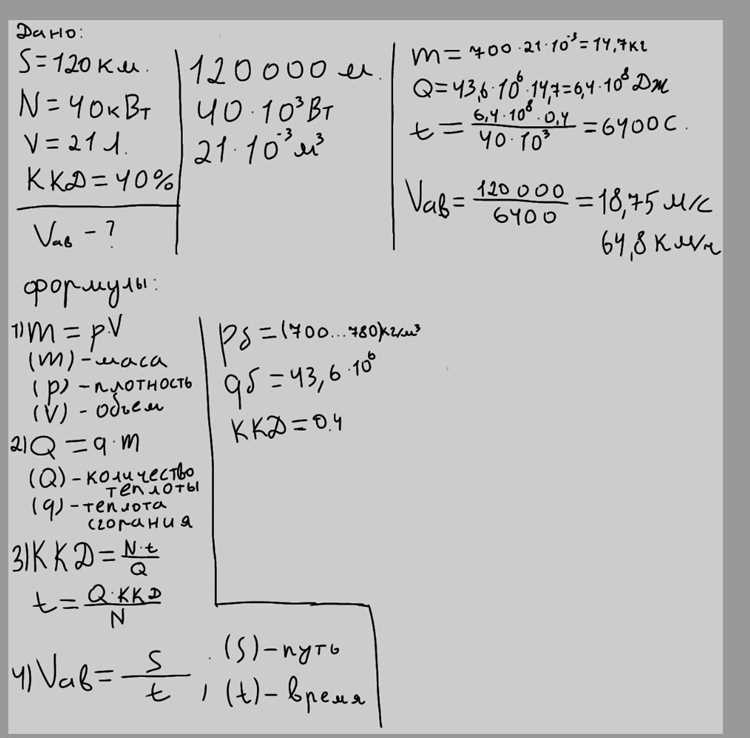 Дано:
S=120км.
N=40кВт
V=21л.
ККД=40%
Vав-?
120000м.
40·10³Вт
21·10⁻³м³
m=700·21·10⁻³=14,7кг
Q=43,6·10⁶·14,7=6,4·10⁸Дж
t=6,4·10⁸·0,4/40·10³=6400С.
Vав=120000/6400=18,75м/с
64,8км/ч
формулы:
1)m=p·V
(m)-маса
(p)-плотность
(V)-объем
2)Q=q·m
(Q)-количество
теплоты
(q)-теплота
сгорания
3)ККД=N·t/Q
t=Q·ККД/N
4)Vав=S/t, (S)-путь
(t)-время
pб=(700...780)кг/м³
qб=43,6·10⁶
ККД=0.4